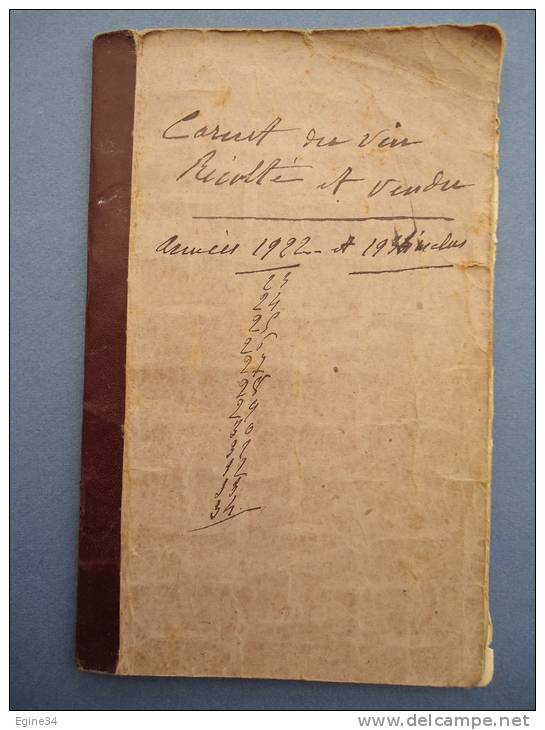 Carnet du Vin
Récolté et Vendu
Années 1922 - et 1934 inclus
23
24
25
26
27
28
29
30
31
32
33
34
Egine34
www.delcampe.net